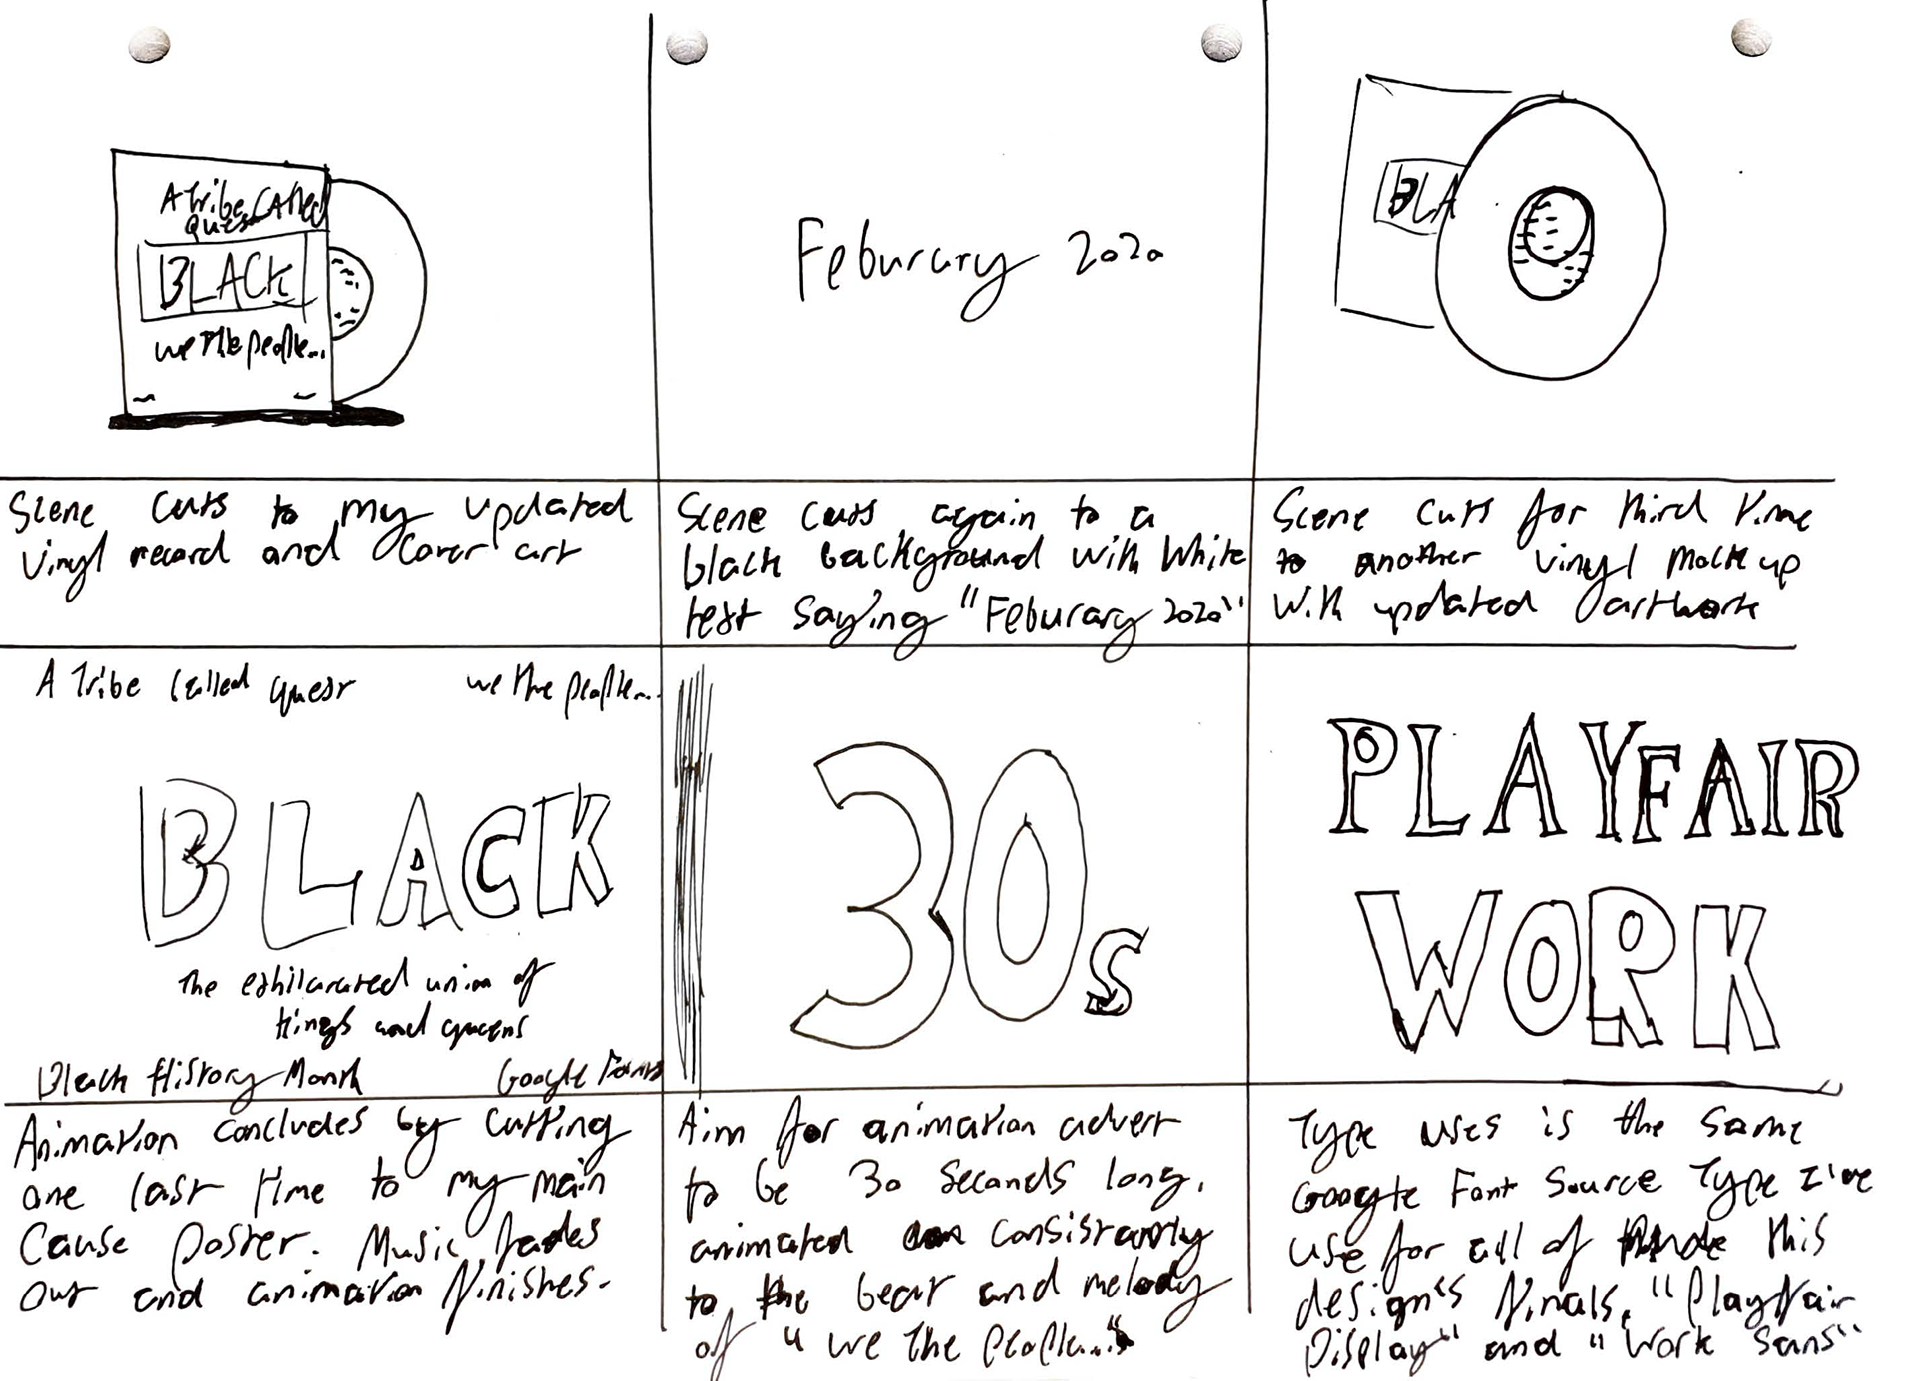 A Tribe Called
Quest
BLACK
we the people...
Feburary 2020
BLA
Scene cuts to my updated
vinyl record and cover art
Scene cuts again to a
black background with white
text saying "Feburary 2020"
Scene cuts for third time
to another vinyl mock up
with updated artwork
A Tribe Called Quest we the people...
BLACK
The exhilarated union of
kings and queens
Black History Month Google Fonts
30s
PLAYFAIR
WORK
Animation concludes by cutting
one last time to my main
cause poster. Music fades
out and animation finishes.
Aim for animation advert
to be 30 seconds long,
animated consistantly
to the beat and melody
of "we the people..."
Type uses is the same
Google Font source Type I've
use for all of this
design's finals, "Playfair
Display" and "Work Sans"